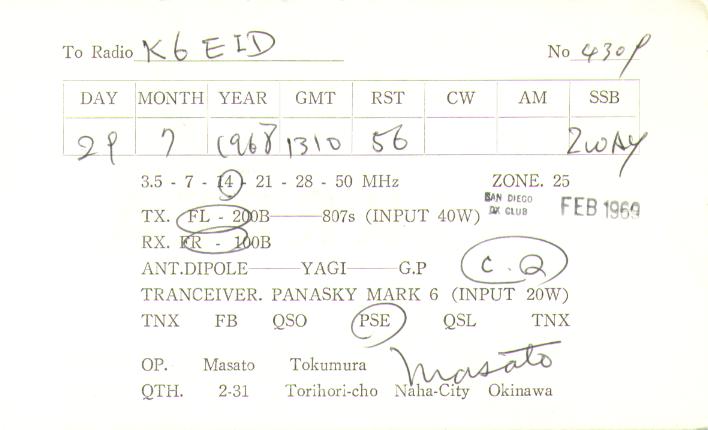 To Radio K6EID No 4309
DAY MONTH YEAR GMT RST CW AM SSB
29 7 1968 1310 56 2WAY
3.5 - 7 - 14 - 21 - 28 - 50 MHz ZONE. 25
SAN DIEGO
DX CLUB
FEB 1969
TX. FL - 200B 807s (INPUT 40W)
RX. FR - 100B
ANT.DIPOLE YAGI G.P C.Q
TRANCEIVER. PANASKY MARK 6 (INPUT 20W)
TNX FB QSO PSE QSL TNX
OP. Masato Tokumura Masato
QTH. 2-31 Torihori-cho Naha-City Okinawa